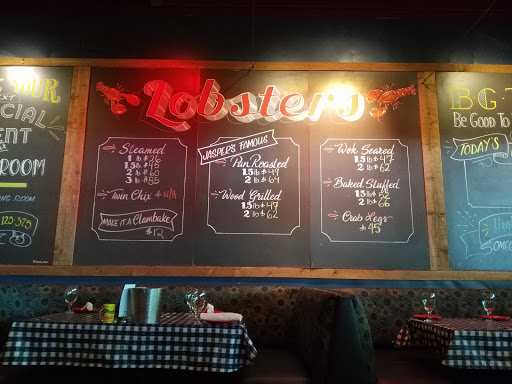 YOUR
EXT
ECIAL
ENT
ROOM
NG ROOM
125-375
Lobsters
Steamed
1 lb $26
1.5 lb $45
2 lb $60
3 lb $85
Twin Chix $ N/A
MAKE IT A Clambake
$12
JASPER'S FAMOUS
Pan Roasted
1.5 lb $49
2 lb $64
Wood Grilled
1.5 lb $47
2 lb $62
Wok Seared
1.5 lb $47
2 lb $62
Baked Stuffed
1.5 lb $52
2 lb $66
Crab Legs
$45
B.G.T
BE GOOD TO
TODAY'S
SOMEO